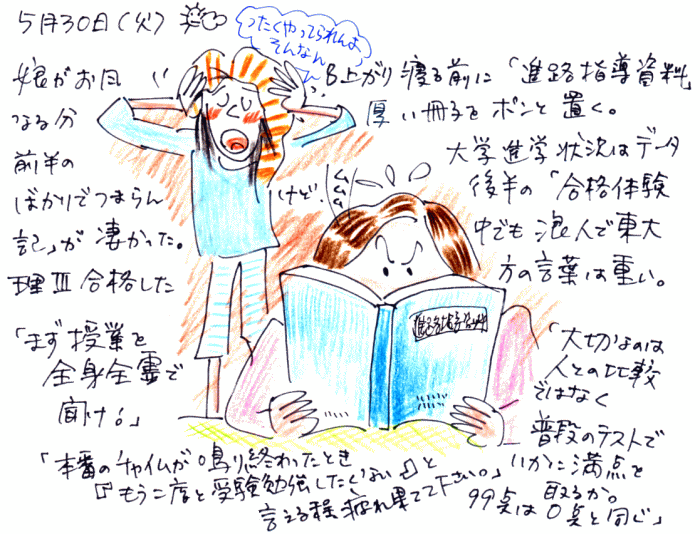 5月30日(火)
ったくやってられんよ
そんなん
娘がお風呂上がり寝る前に「進路指導資料」
なる分厚い冊子をポンと置く。
前半の大学進学状況はデータ
ばかりでつまらんけど、後半の「合格体験
記」が凄かった。中でも浪人で東大
理Ⅲ合格した方の言葉は重い。
ムムム
進路指導資料
「まず授業を
全身全霊で
聞け。」
「大切なのは
人との比較
ではなく
普段のテストで
いかに満点を
取るか。
99点は0点と同じ」
「本番のチャイムが鳴り終わったとき
『もう二度と受験勉強したくない』と
言える程疲れ果てて下さい。」